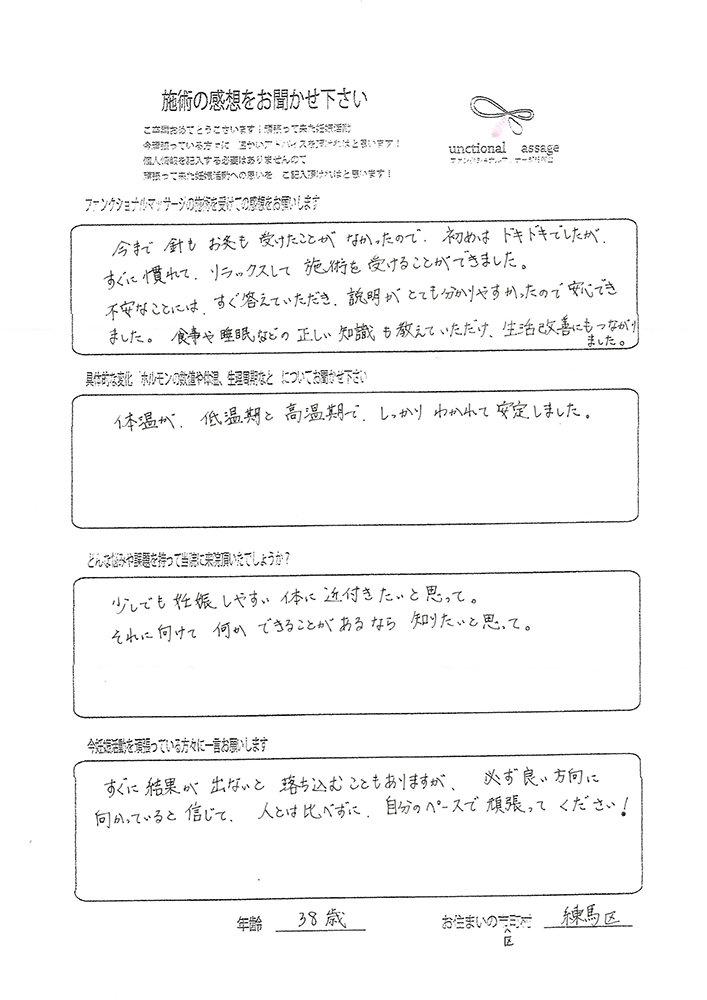 施術の感想をお聞かせ下さい
ご卒業おめでとうございます！頑張って来た妊娠活動
今頑張っている方々に 温かいアドバイスを頂ければと思います！
個人情報を記入する必要はありませんので
頑張って来た妊娠活動への思いを ご記入頂ければと思います！
unctional assage
ファンクショナルマッサージの施術を受けての感想をお願いします
今まで 針も お灸も 受けたことが なかったので、初めは ドキドキでしたが、
すぐに 慣れて、リラックスして 施術を 受けることができました。
不安なことには、すぐ答えていただき、説明が とても分かりやすかったので 安心でき
ました。食事や 睡眠などの 正しい 知識 も 教えていただけ、生活改善にもつながり
ました。
具体的な変化 ホルモンの数値や体温、生理周期など についてお聞かせ下さい
体温が、低温期と 高温期で、しっかり わかれて 安定しました。
どんな悩みや課題を持って当院に来院頂いたでしょうか？
少しでも 妊娠しやすい 体に 近付きたいと 思って。
それに向けて 何か できることが あるなら 知りたいと思って。
今妊娠活動を頑張っている方々に一言お願いします
すぐに 結果が 出ないと 落ち込むこともありますが、 必ず良い方向に
向かっていると 信じて、人とは比べずに、自分のペースで 頑張って ください！
年齢 38歳
お住まいの市町村 練馬区
区